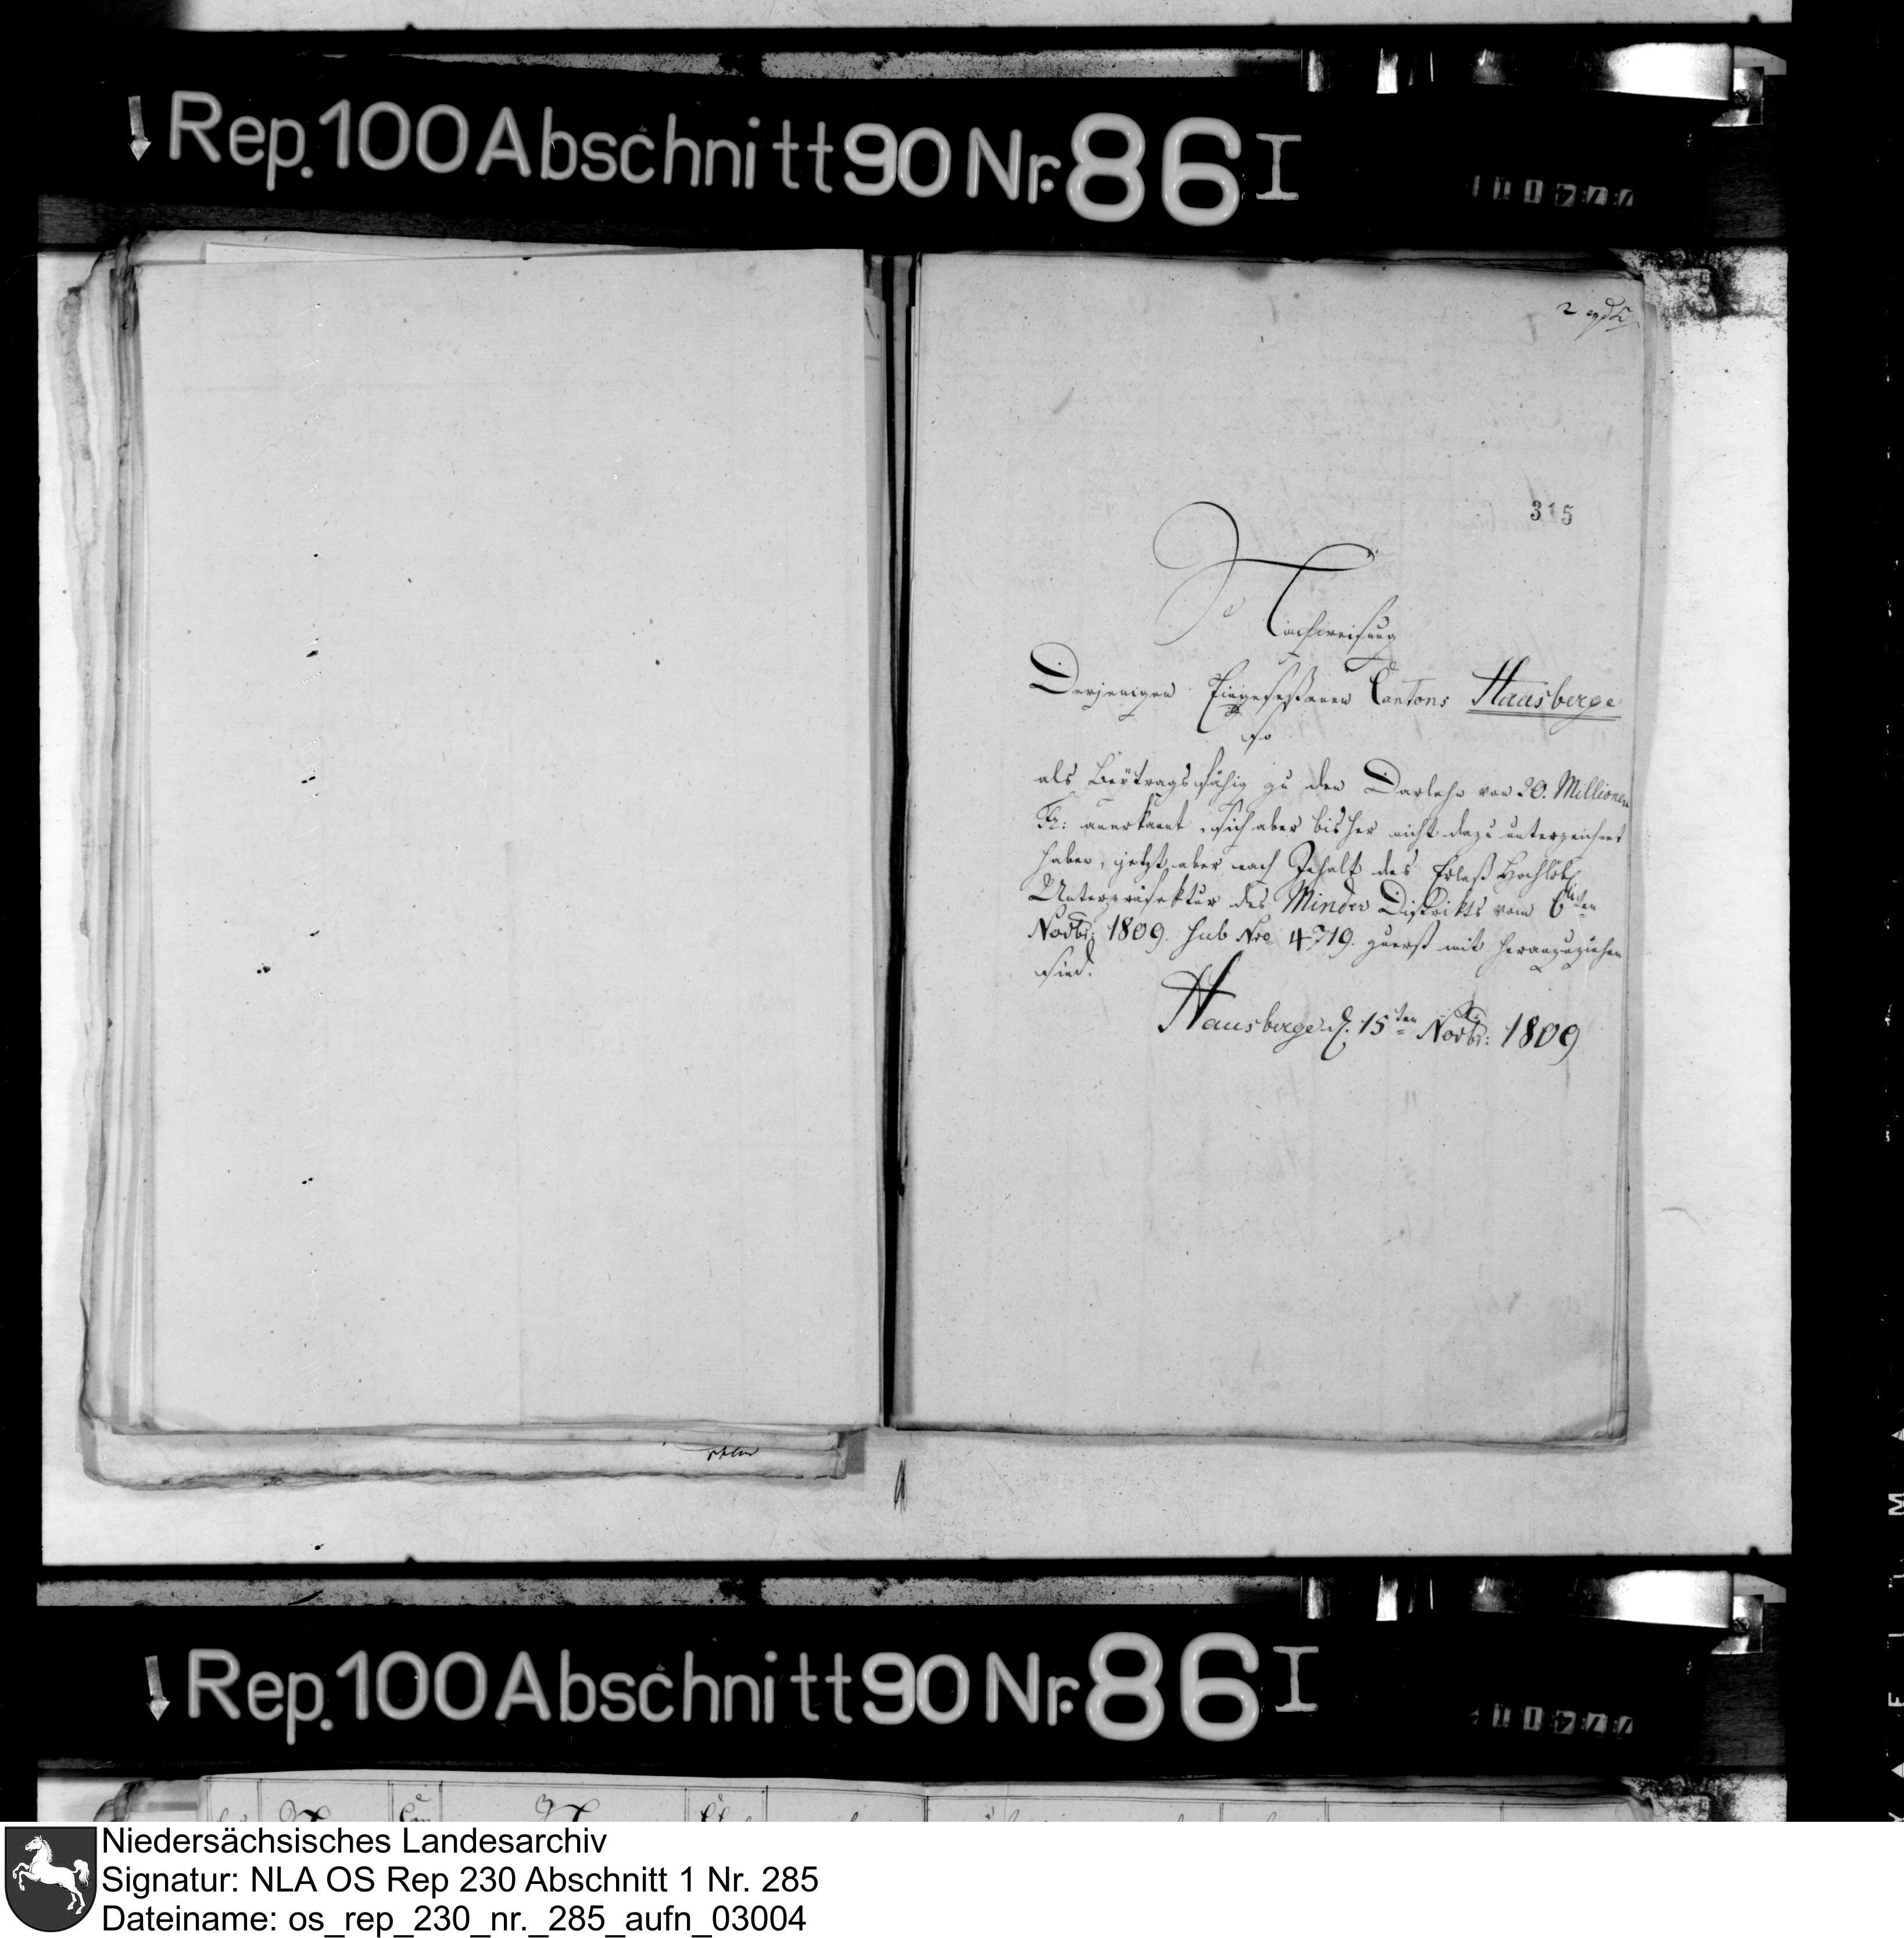 Rep. 100 Abschnitt 90 Nr. 86 I
315
Nachweisung
Derjenigen Eingeseßenen Cantons Hausberge
so
als Beÿtragsfähig zu den Darlehn von 20. Millionen
Fr: anerkant, sich aber bisher nicht dazu unterzeichnet
haben, jetzt aber nach Inhalt des Erlaß Hochlöbl
Unterpräfektur des Minder Distrikts vom 6ten
Novbr: 1809. sub Nro 4719. zuerst mit heranzuziehen
sind.
Hausberge d. 15ten Novbr: 1809
Rep. 100 Abschnitt 90 Nr. 86 I
Niedersächsisches Landesarchiv
Signatur: NLA OS Rep 230 Abschnitt 1 Nr. 285
Dateiname: os_rep_230_nr._285_aufn_03004